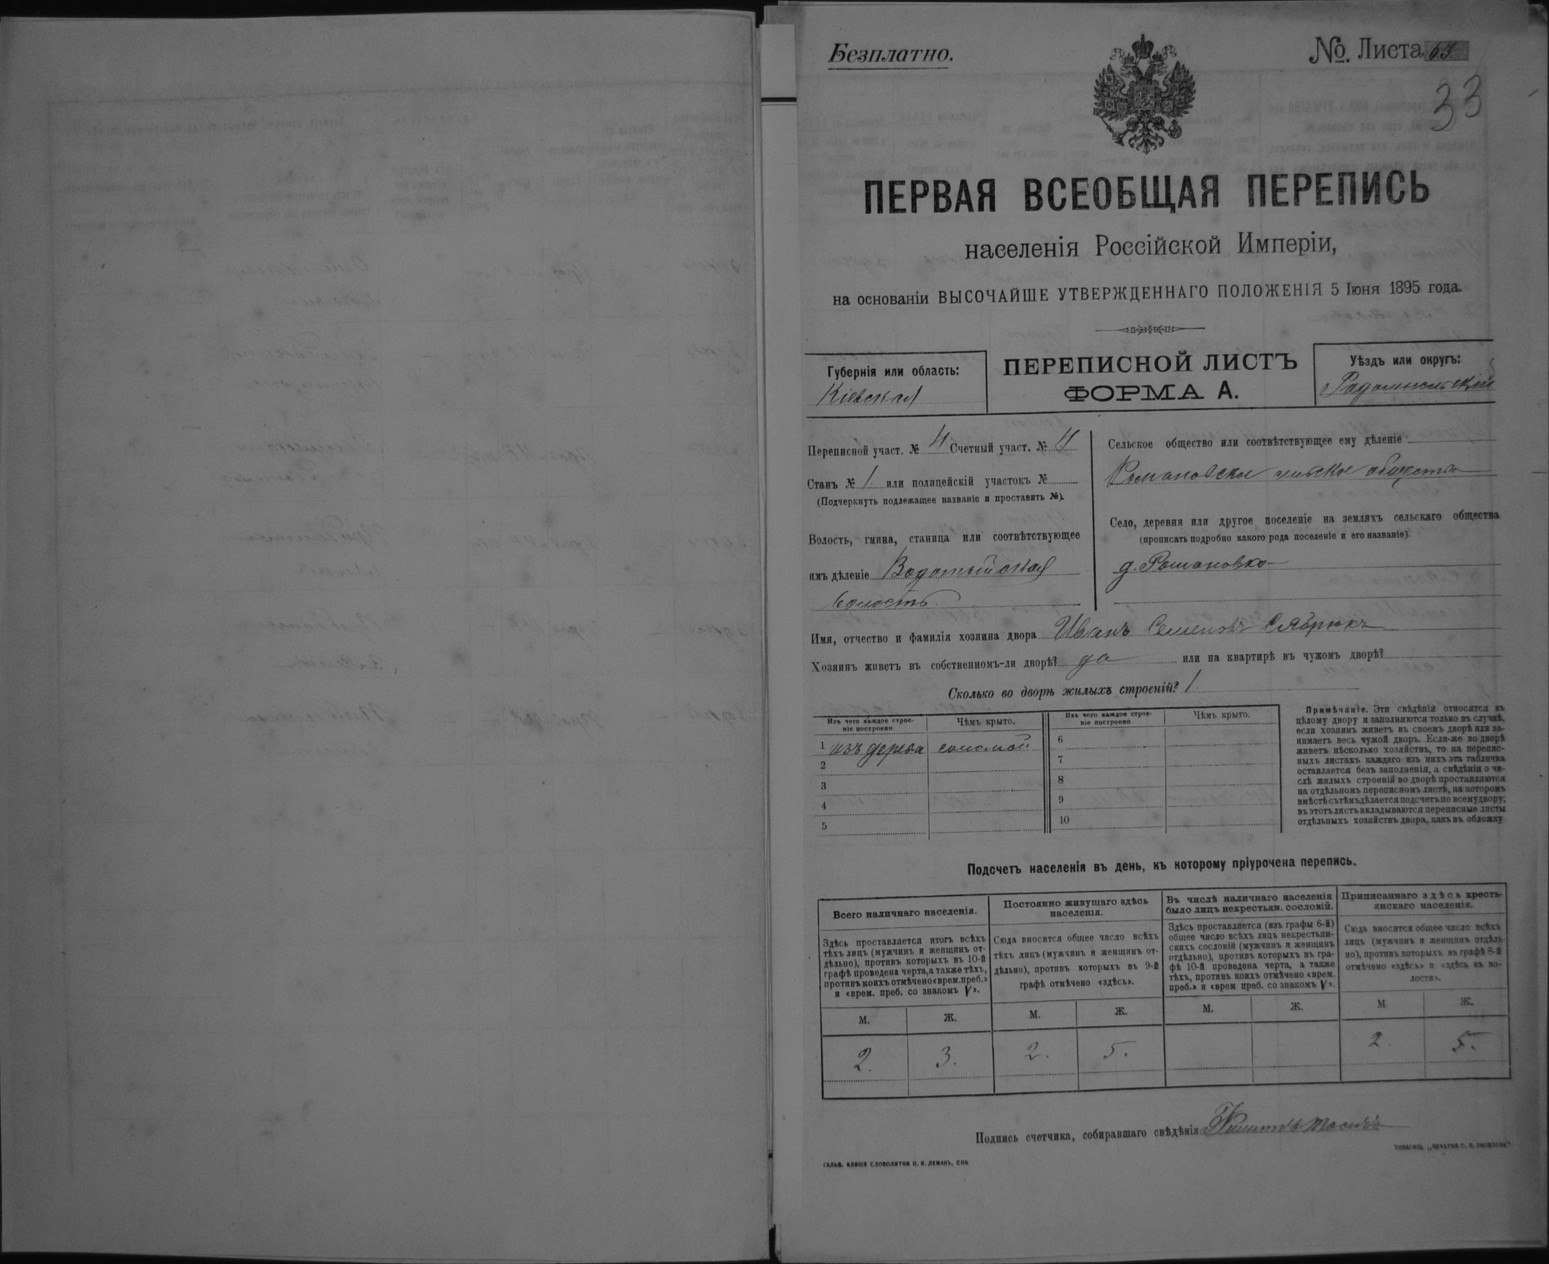 Безплатно.
№ Листа 63
33
ПЕРВАЯ ВСЕОБЩАЯ ПЕРЕПИСЬ
населенія Россійской Имперіи,
на основаніи ВЫСОЧАЙШЕ УТВЕРЖДЕННАГО ПОЛОЖЕНІЯ 5 Іюня 1895 года.
Губернія или область:
Кіевская
ПЕРЕПИСНОЙ ЛИСТЪ
ФОРМА А.
Уѣздъ или округъ:
Радомысльскій
Переписной участ. № 4 Счетный участ. № 4
Станъ № 1 или полицейскій участокъ №
(Подчеркнуть подлежащее названіе и проставить №).
Волость, гмина, станица или соотвѣтствующее
имъ дѣленіе Водотыйская
волость.
Сельское общество или соотвѣтствующее ему дѣленіе
Романовское сельское общество
Село, деревня или другое поселеніе на земляхъ сельскаго общества
(прописать подробно какого рода поселеніе и его названіе)
д. Романовка
Имя, отчество и фамилія хозяина двора Иванъ Семеновъ Сябрюкъ
Хозяинъ живетъ въ собственномъ-ли дворѣ? да или на квартирѣ въ чужомъ дворѣ?
Сколько во дворѣ жилыхъ строеній? 1.
Изъ чего каждое строеніе построено.
Чѣмъ крыто.
Изъ чего каждое строеніе построено
Чѣмъ крыто.
1 изъ дерева соломой
2
3
4
5
6
7
8
9
10
Примѣчаніе. Эти свѣдѣнія относятся къ
цѣлому двору и заполняются только въ случаѣ,
если хозяинъ живетъ въ своемъ дворѣ или за-
нимаетъ весь чужой дворъ. Если-же во дворѣ
живетъ нѣсколько хозяйствъ, то на перепис-
ныхъ листахъ каждаго изъ нихъ эта табличка
оставляется безъ заполненія, а свѣдѣнія о чи-
слѣ жилыхъ строеній во дворѣ проставляются
на отдѣльномъ переписномъ листѣ, на которомъ
вмѣстѣ съ тѣмъ дѣлается подсчетъ по всему двору;
въ этотъ листъ вкладываются переписные листы
отдѣльныхъ хозяйствъ двора, какъ въ обложку
Подсчетъ населенія въ день, къ которому пріурочена перепись.
Всего наличнаго населенія.
Здѣсь проставляется итогъ всѣхъ
тѣхъ лицъ (мужчинъ и женщинъ от-
дѣльно), противъ которыхъ въ 10-й
графѣ проведена черта, а также тѣхъ,
противъ коихъ отмѣчено «врем. преб.»
и «врем. преб. со знакомъ V».
Постоянно живущаго здѣсь
населенія.
Сюда вносится общее число всѣхъ
тѣхъ лицъ (мужчинъ и женщинъ от-
дѣльно), противъ которыхъ въ 9-й
графѣ отмѣчено «здѣсь».
Въ числѣ наличнаго населенія
было лицъ некрестьян. сословій.
Здѣсь проставляется (изъ графы 6-й)
общее число всѣхъ лицъ некрестьян-
скихъ сословій (мужчинъ и женщинъ
отдѣльно), противъ которыхъ въ гра-
фѣ 10-й проведена черта, а также
тѣхъ, противъ коихъ отмѣчено «врем.
преб.» и «врем преб. со знакомъ V».
Приписаннаго здѣсь кресть-
янскаго населенія.
Сюда вносится общее число всѣхъ
лицъ (мужчинъ и женщинъ отдѣль-
но), противъ которыхъ въ графѣ 8-й
отмѣчено «здѣсь» и «здѣсь въ во-
лости».
М. Ж. М. Ж. М. Ж. М. Ж.
2. 3. 2. 5. 2 5.
Подпись счетчика, собиравшаго свѣдѣнія
ГАЛЬВ. КЛИШЕ СЛОВОЛИТНИ О. И. ЛЕМАНЪ, СПБ